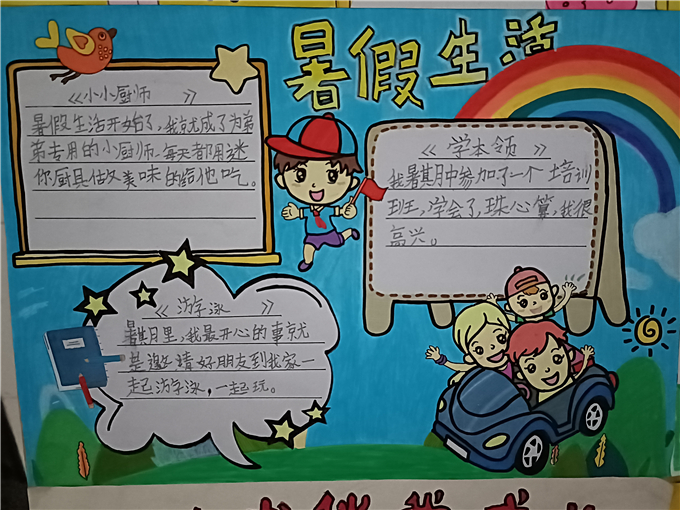 暑假生活
《小小厨师 》
暑假生活开始了,我就成了为弟
弟专用的小厨师.每天都用迷
你厨具做美味的给他吃。
《 学本领 》
我暑期中参加了一个培训
班,学会了,珠心算,我很
高兴。
《 游学泳 》
暑期里,我最开心的事就
是邀请好朋友到我家一
起游学泳,一起玩。